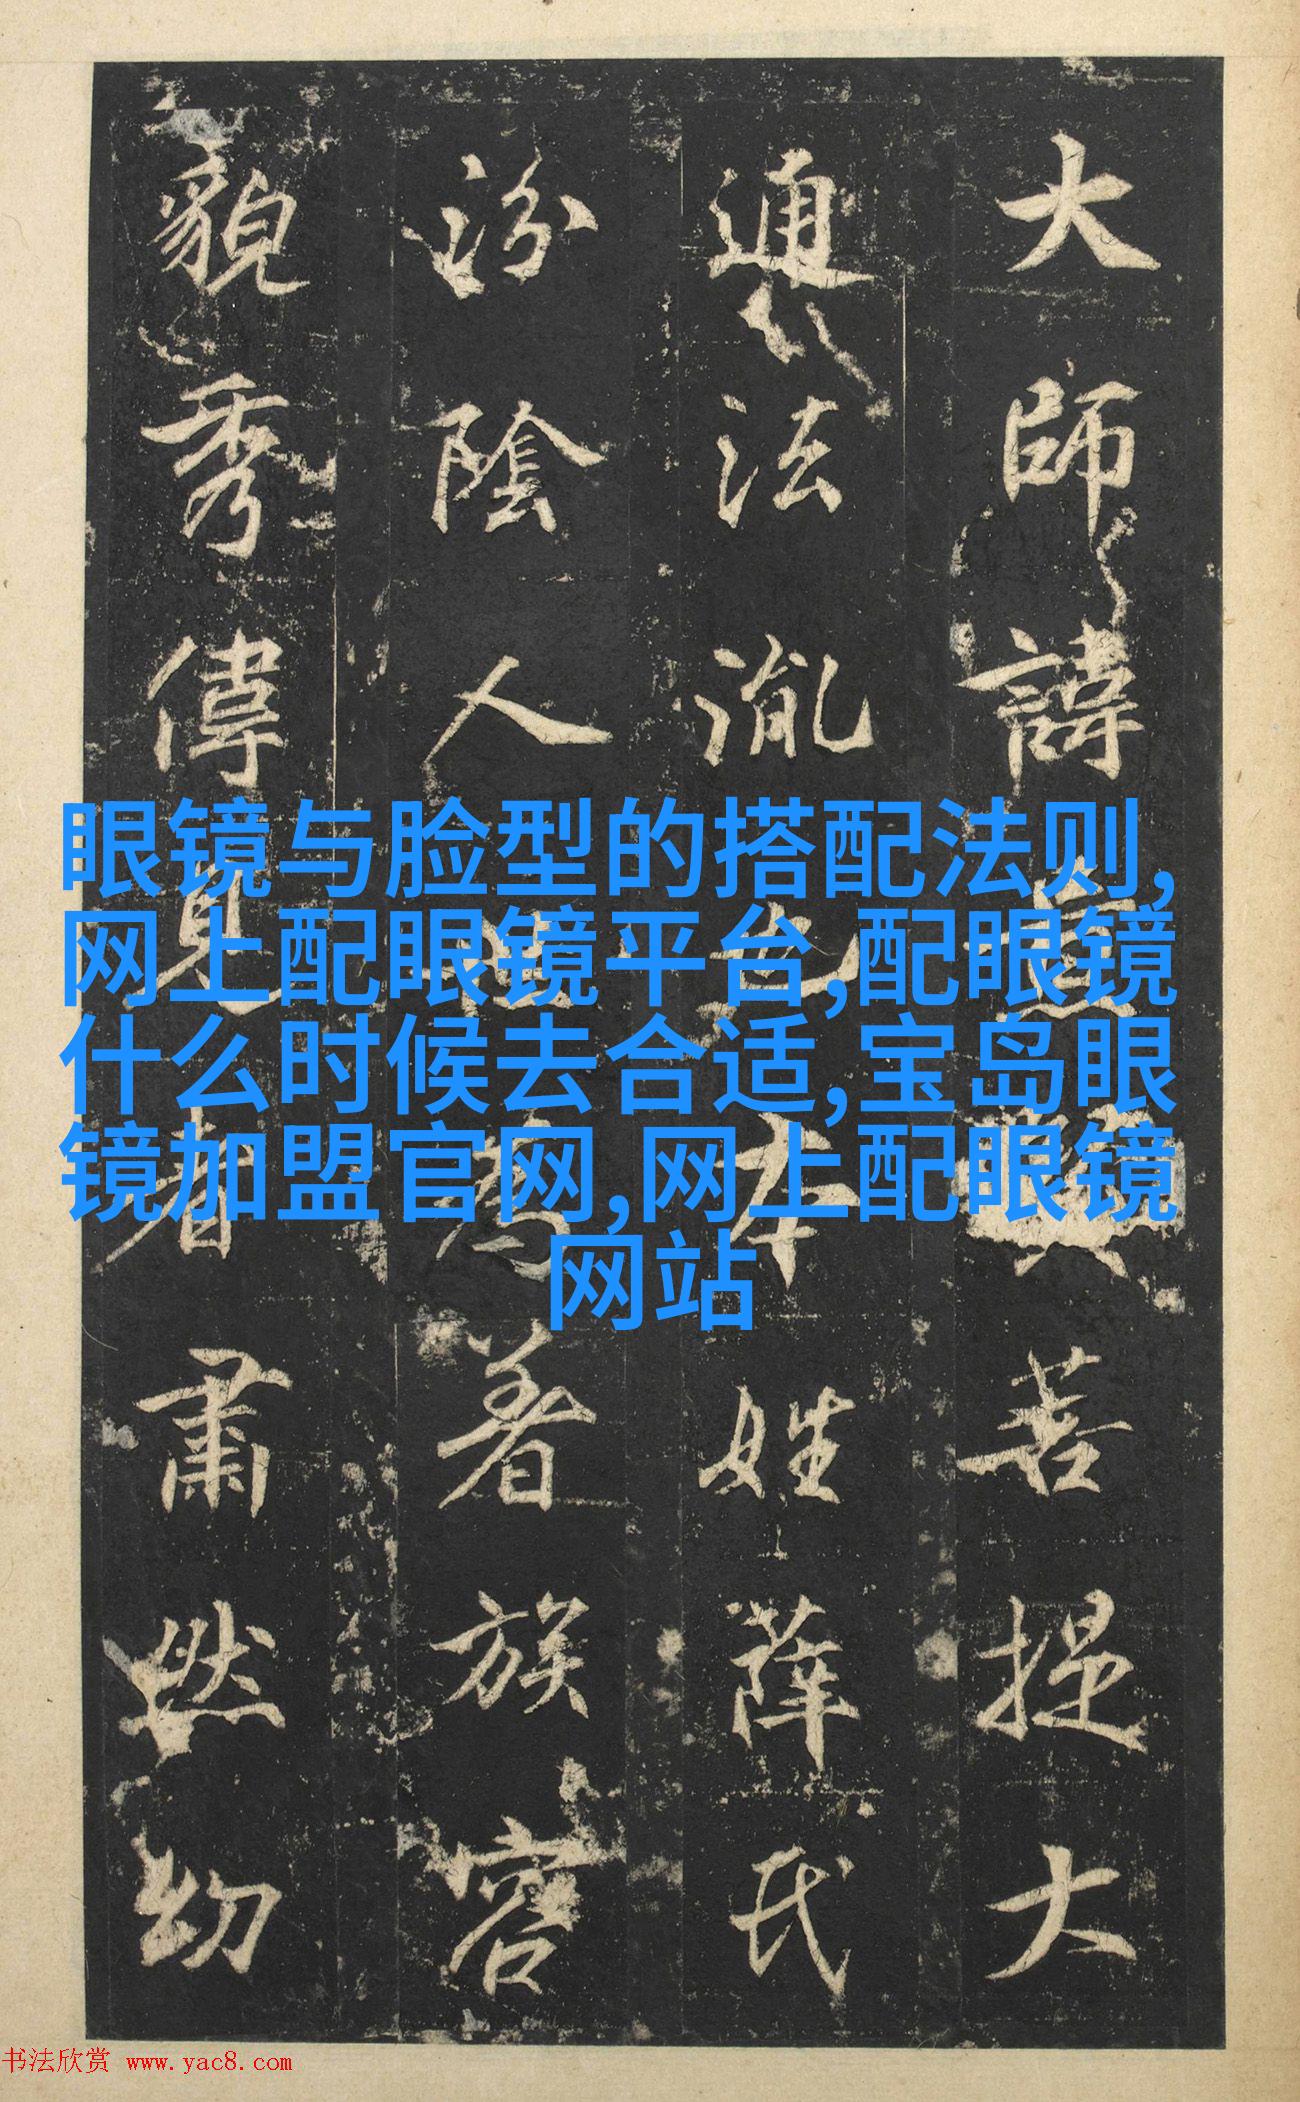 大師諱菩提大
通法也本姓薛氏
汾陰人世為著族容
貌秀偉見者肅然幼
眼镜与脸型的搭配法则,
网上配眼镜平台,配眼镜
什么时候去合适,宝岛眼
镜加盟官网,网上配眼镜
网站
书法欣赏 www.yac8.com